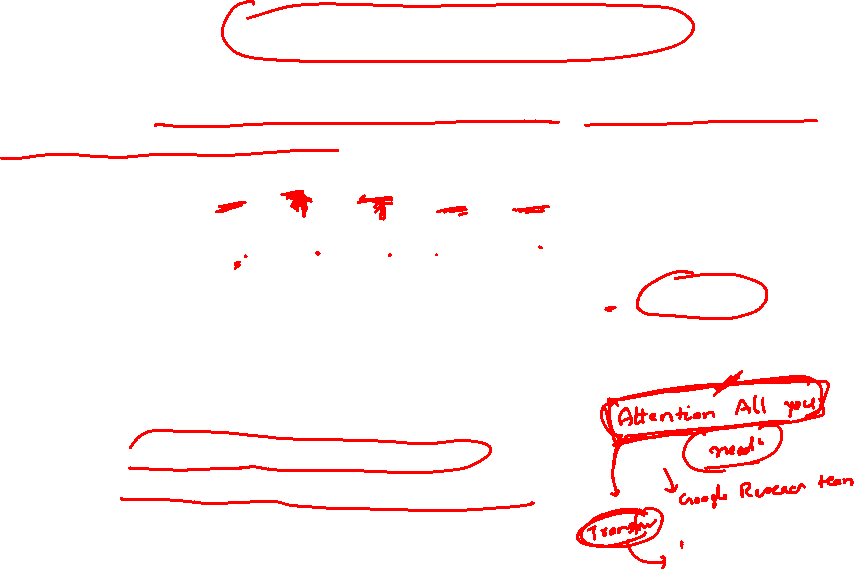 Attention All you
need
Google Research team
Transfor